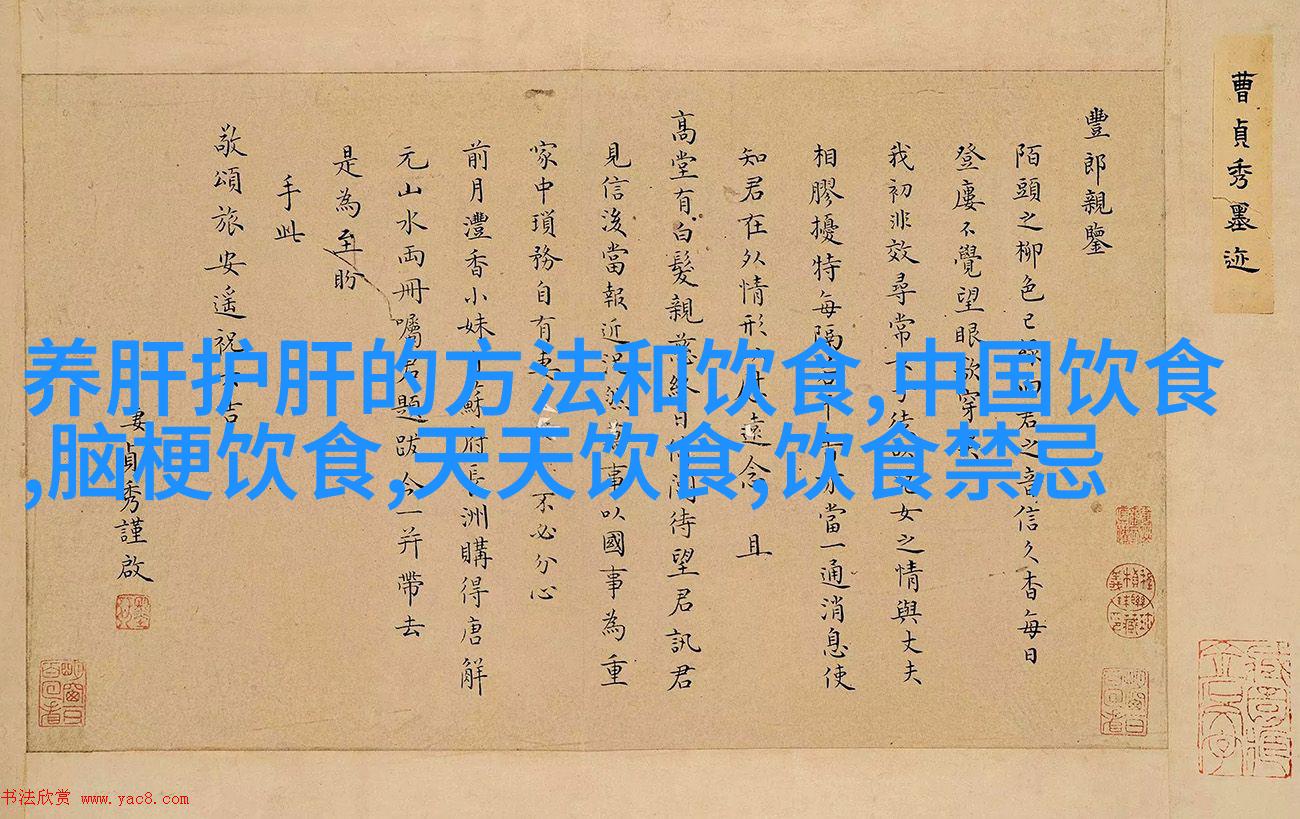 曹貞秀墨迹
豐郎親鑒
陌頭之柳色已君之音信久杳每日
登廔不覺望眼欲穿
我初非效尋常女之情與丈夫
相膠擾特每隔當一通消息使
知君在外情形遠念 且
高堂有白髮親慈終日倚閭待望君訊君
見信後當報近況然萬事以國事為重
家中瑣務自有妻不必分心
前月灃香小妹蘇府長洲購得唐解
元山水兩冊囑君題跋今一并帶去
是為至盼
手此
敬頌旅安遙祝吉
妻貞秀謹啟
养肝护肝的方法和饮食,中国饮食
,脑梗饮食,天天饮食,饮食禁忌
书法欣赏 www.yac8.com